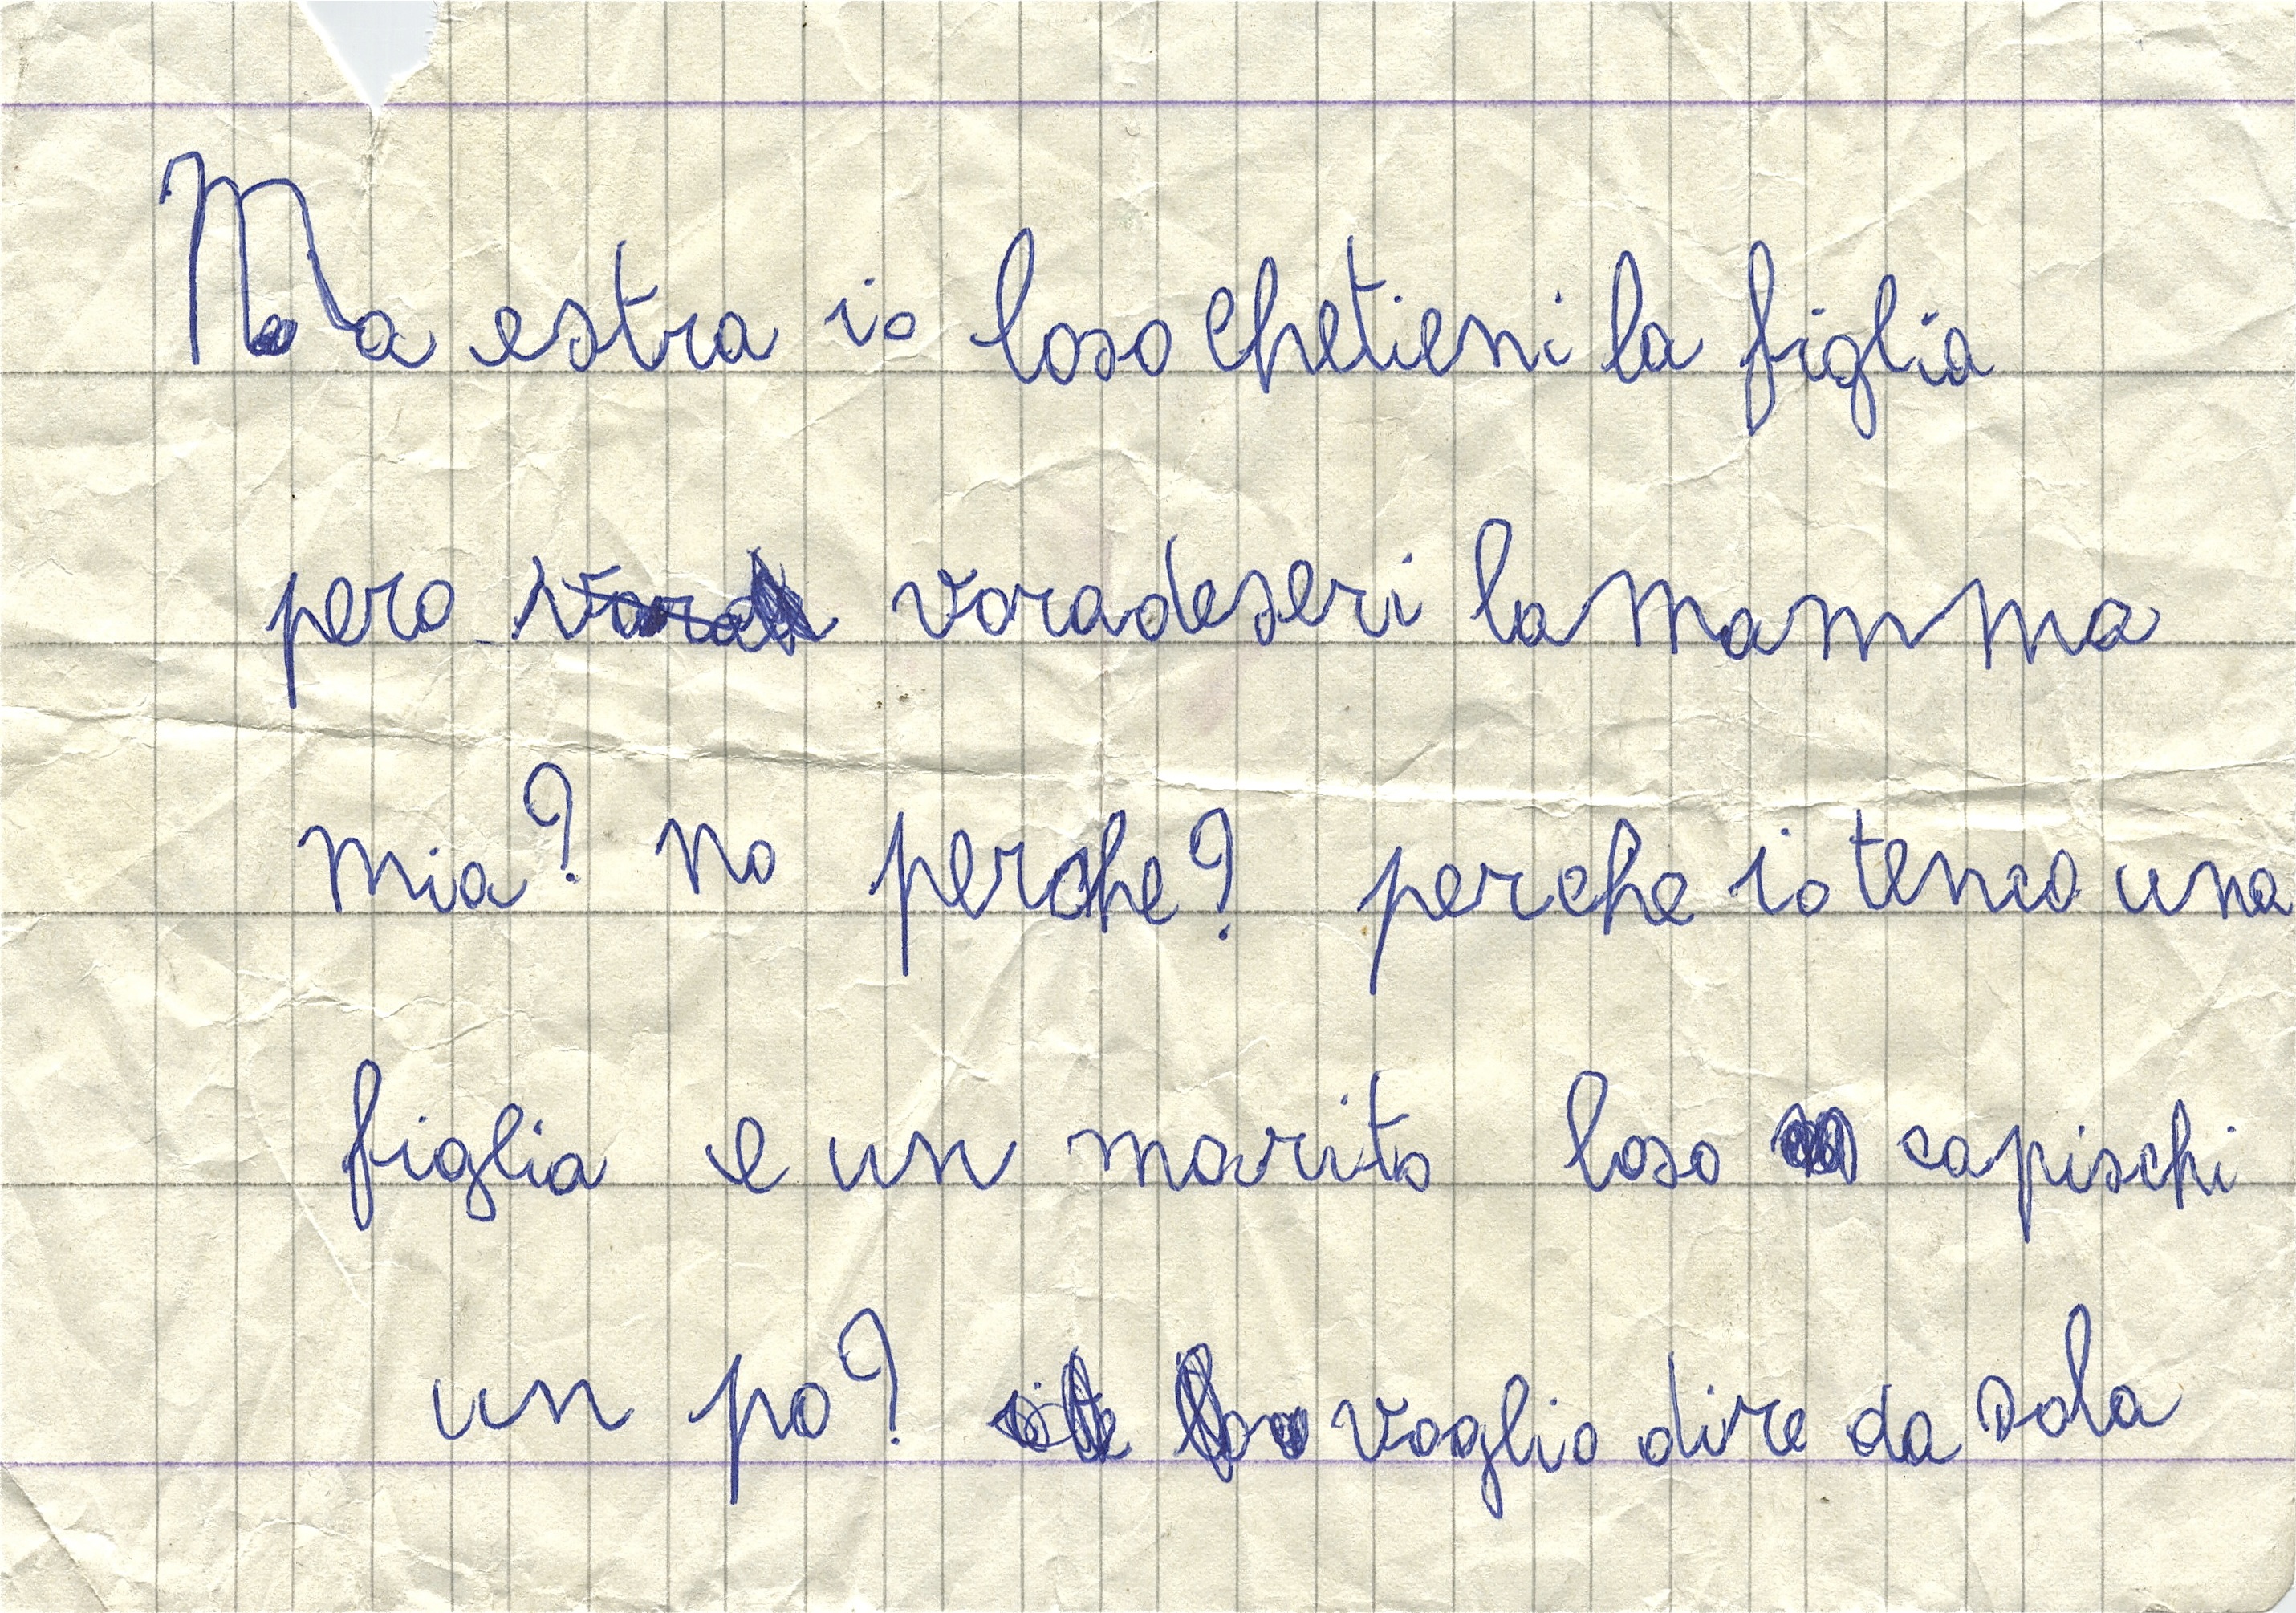 Ma estra io loso chetieni la figlia
pero voradeseri la mamma
mia? no perche? perche io tenco una
figlia e un marito loso capischi
un po? voglio dire da sola